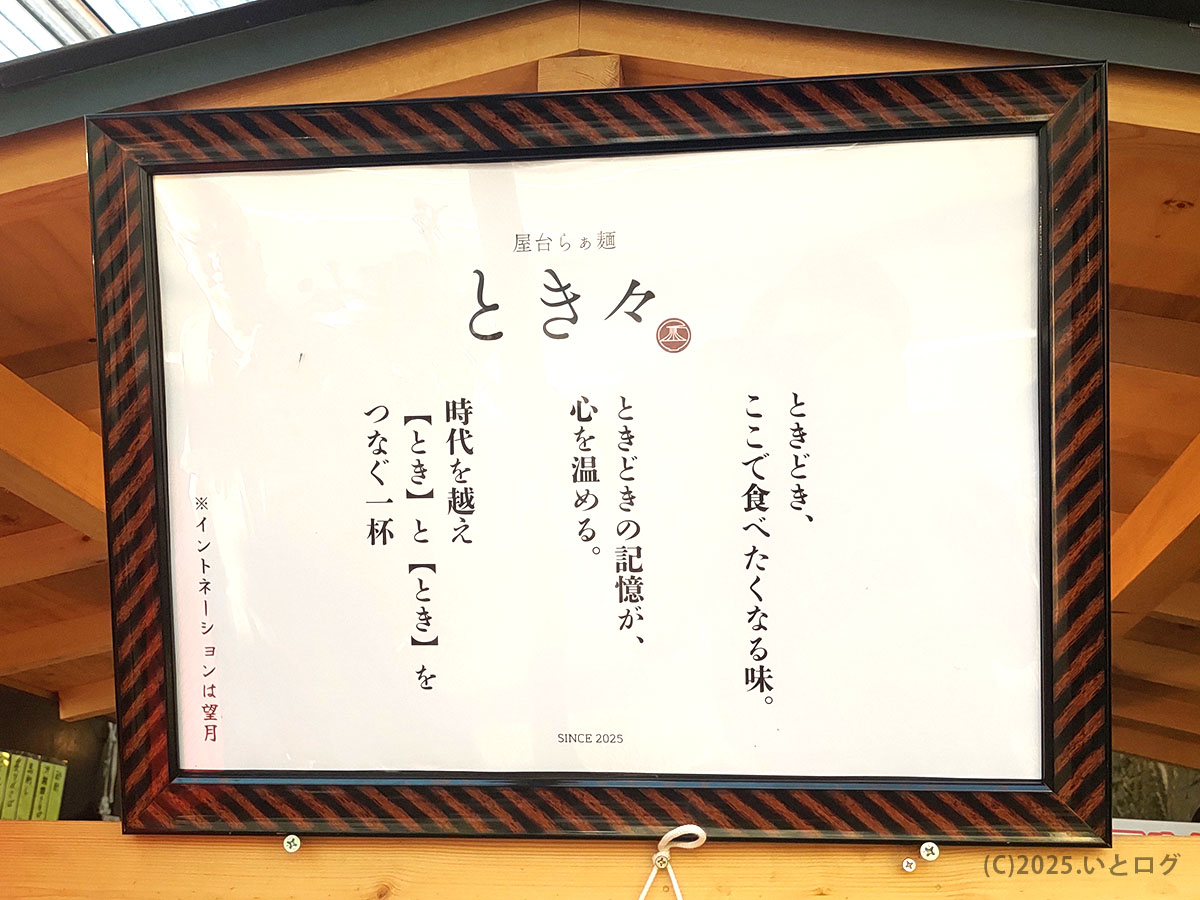 屋台らぁ麺
とき々
ときどき、
ここで食べたくなる味。
ときどきの記憶が、
心を温める。
時代を越え
【とき】と【とき】を
つなぐ一杯
※イントネーションは望月
SINCE 2025
(C)2025.いとログ